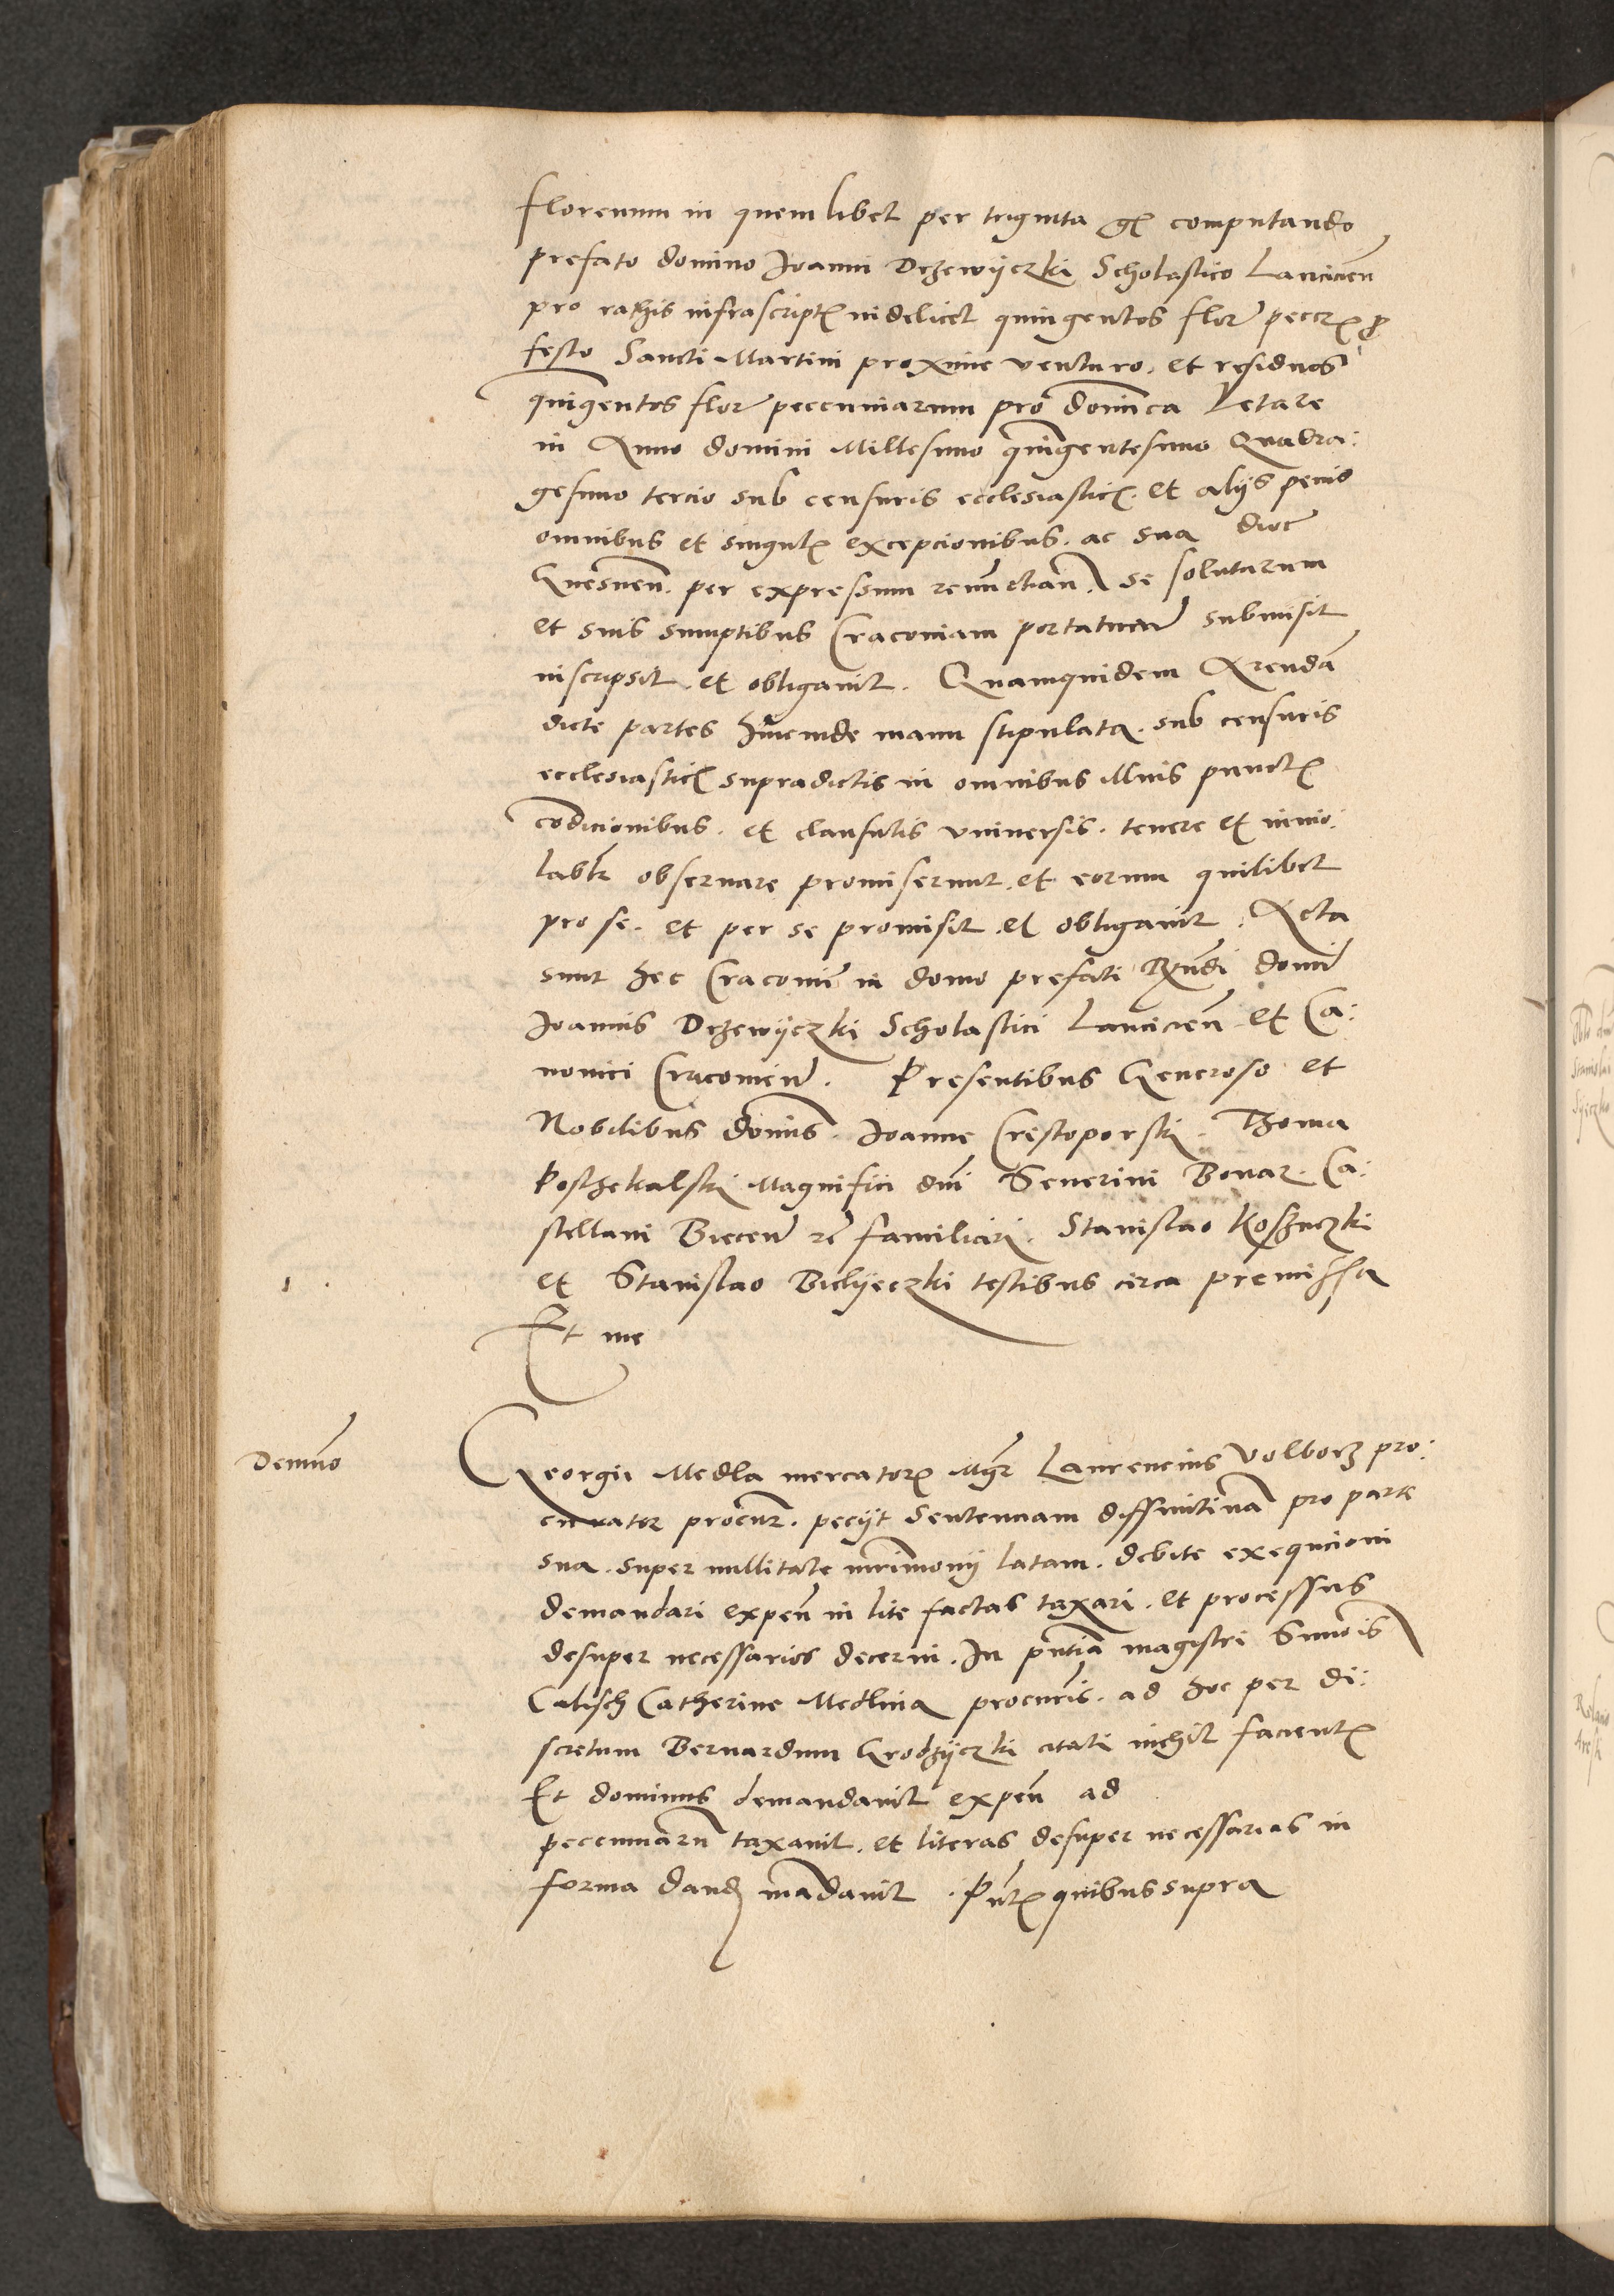 florenum in quemlibet per triginta gr computando
prefato domino Joanni Drzewyczki Scholastico Lancicien
pro rathis infrascript videlicet quingentos flor peccr p
festo Sancti Martini proxime venturo. et residuos
quigentos flor peccuniarum pro domica Letare
in Anno domini Millesimo quingentesimo Quadra:
gesimo tercio sub censuris ecclesiastic. et alijs penis
omnibus et singul excepcionibus. ac sua dioc
Gnesnen. per expressum renunctian. se soluturum
et suis sumptibus Cracoviam portatur submisit
inscripsit. et obligavit. Quamquidem Arenda
dicte partes hincinde manu stipulata. sub censuris
ecclesiastic supradictis in omnibus illius punct
condicionibus. et clausulis vniversis. tenere et invio:
labltr observare promiserunt. et eorum quilibet
pro se. et per se promisit. et obligavit. Acta
sunt hec Cracovie in domo prefati Rndi domi
Joannis Drzewyczki Scholastici Lancicien et Ca:
nonici Cracovien. Presentibus Generoso et
Nobilibus domis. Joanne Crestoporski. Thoma
Poschekalski Magnifici dni Severini Bonar. Ca:
stellani Biecen re familiari. Stanislao
et Stanislao Bielyeczki testibus circa premissa
Et me
Georgii Medla mercator Mgr Laurencius Volborz pro:
curator procur. peciit Sentenciam diffinitivam pro parte
sua. super nullitate mrimonij latam. debite exequcioni
demandari expen in lite factas taxari. et processus
desuper necessarios decerni. In pntia magistri Simois
Calisch Catherine Medlina procuris. ad hoc per di:
scretum Bernardum Grodzyczki citati nichil facient
Et dominus demandavit expen ad
peccuniaru taxavit. et literas desuper necessarias in
forma dand madavit. Pnt quibus supra